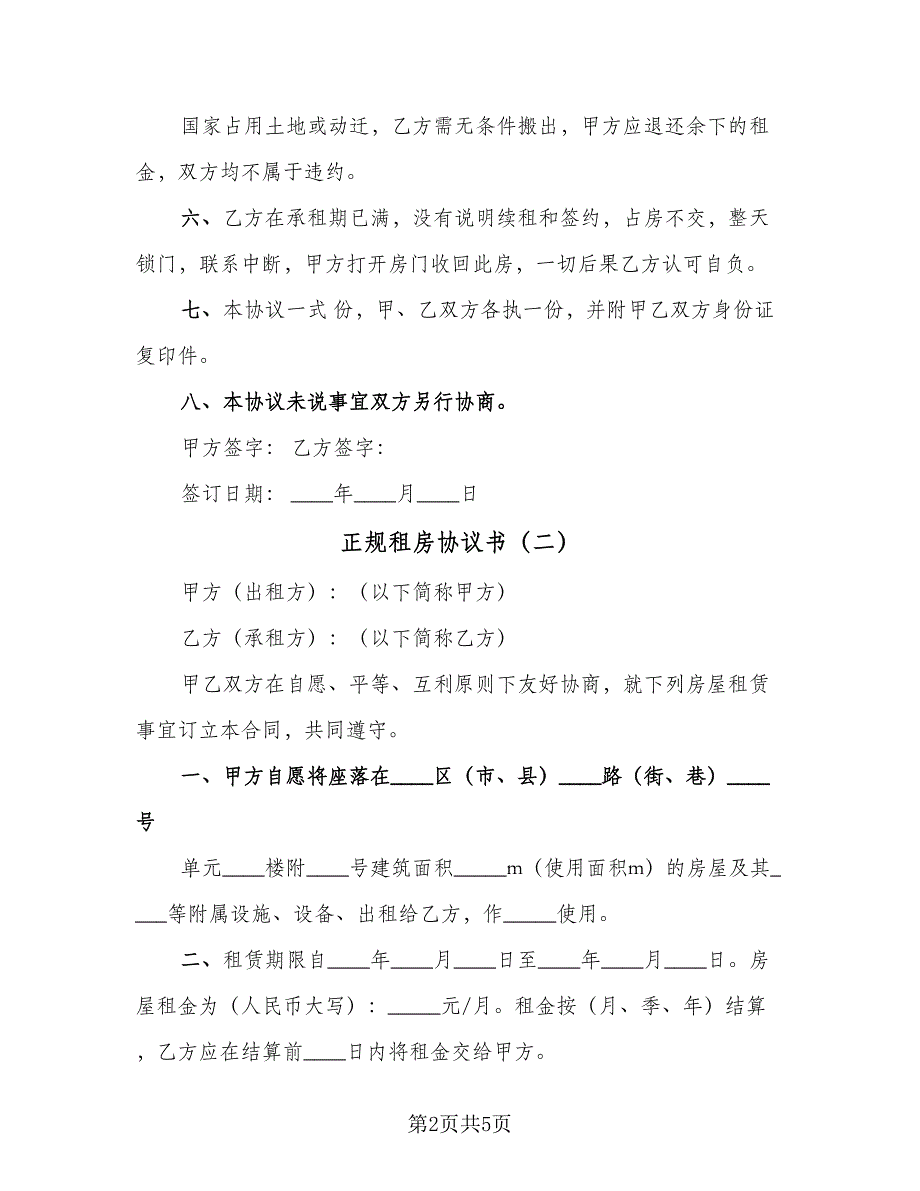 国家占用土地或动迁，乙方需无条件搬出，甲方应退还余下的租
金，双方均不属于违约。
六、乙方在承租期已满，没有说明续租和签约，占房不交，整天
锁门，联系中断，甲方打开房门收回此房，一切后果乙方认可自负。
七、本协议一式 份，甲、乙双方各执一份，并附甲乙双方身份证
复印件。
八、本协议未说事宜双方另行协商。
甲方签字： 乙方签字：
签订日期： ____年____月____日
正规租房协议书（二）
甲方（出租方）：（以下简称甲方）
乙方（承租方）：（以下简称乙方）
甲乙双方在自愿、平等、互利原则下友好协商，就下列房屋租赁
事宜订立本合同，共同遵守。
一、甲方自愿将座落在____区（市、县）____路（街、巷）____
号
单元____楼附____号建筑面积_____m（使用面积m）的房屋及其_
___等附属设施、设备、出租给乙方，作_____使用。
二、租赁期限自____年____月____日至____年____月____日。房
屋租金为（人民币大写）：_____元/月。租金按（月、季、年）结算
，乙方应在结算前____日内将租金交给甲方。
第2页共5页